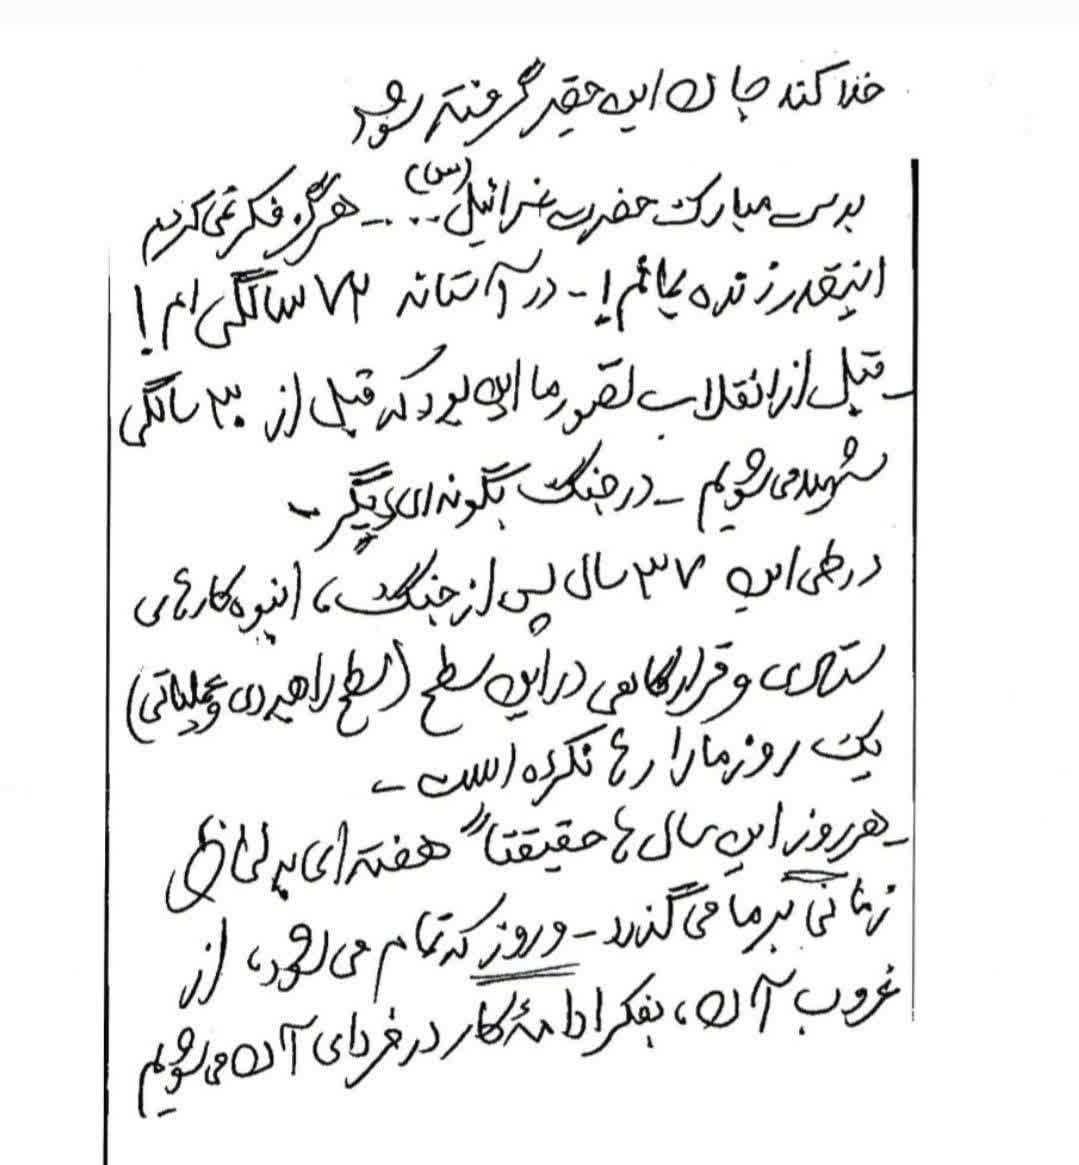 خدا کند جان این حقیر گرفته شود
بدست مبارک حضرت عزرائیل (س) ... - هرگز فکر نمی کردیم
اینقدر زنده بمانم! - در آستانه ۷۳ سالگی ام!
- قبل از انقلاب تصور ما این بود که قبل از ۳۰ سالگی
شهید می شویم - در جنگ بگونه ای دیگر -
در طی این ۳۷ سال پس از جنگ، انبوه کارهای
ستادی و قرارگاهی در این سطح (سطح راهبردی و عملیاتی)
یک روز ما را رها نکرده است -
- هر روز این سال ها حقیقتاً هفته ای به لحاظ
زمانی بر ما می گذرد - و روز که تمام می شود، از
غروب آن، بفکر ادامۀ کار در فردای آن می شویم